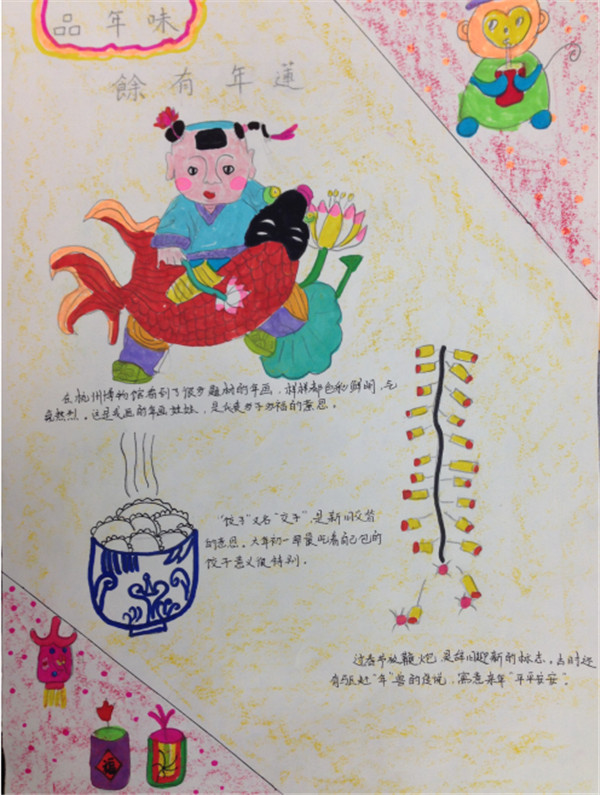 品年味
蓮年有餘
在杭州博物馆看到了很多题材的年画，样样都色彩鲜艳，气
氛热烈。这是我画的年画娃娃，是多子多福的意思。
“饺子”又名“交子”，是新旧交替
的意思。大年初一早晨吃着自己包的
饺子意义很特别。
过春节放鞭炮，是辞旧迎新的标志。古时还
有驱赶“年”兽的传说，寓意来年“平平安安”。
福